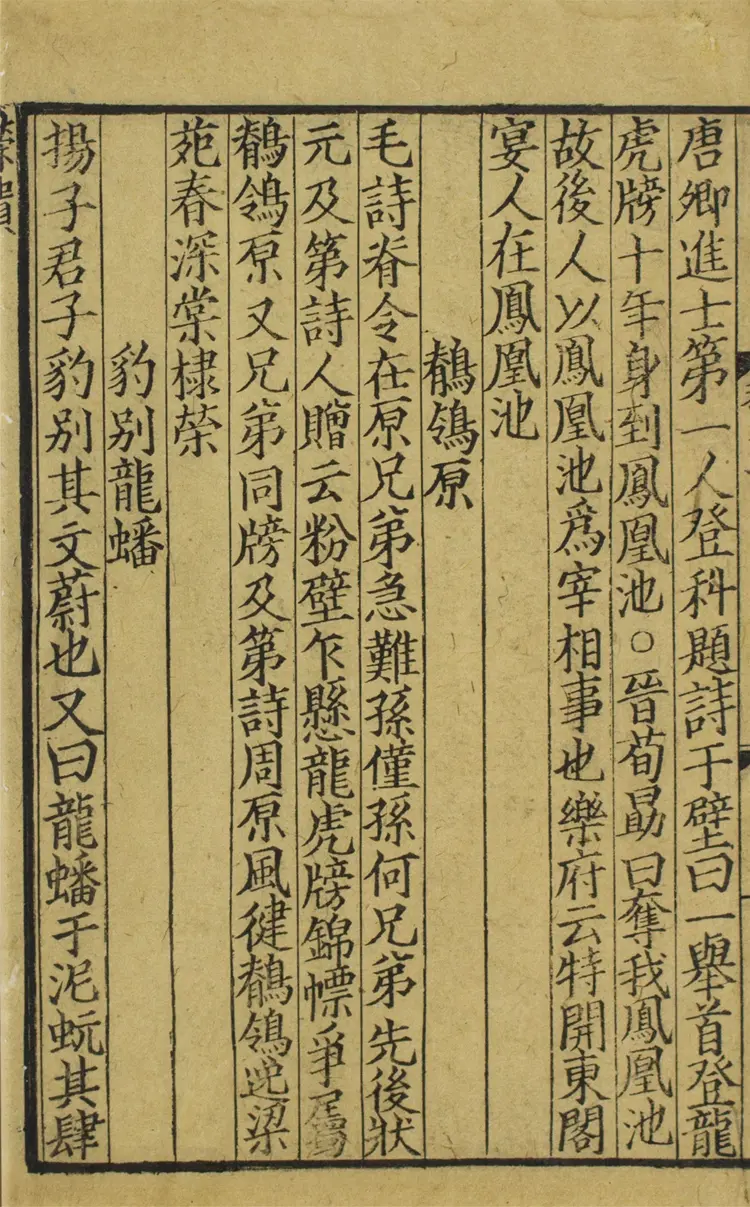 唐卿進士第一人登科題詩于壁曰一舉首登龍
虎牓十年身到鳳凰池○晉荀勗曰奪我鳳凰池
故後人以鳳凰池爲宰相事也樂府云特開東閣
宴人在鳳凰池
鶺鴒原
毛詩脊令在原兄弟急難孫僅孫何兄弟先後狀
元及第詩人贈云粉壁乍懸龍虎牓錦幖爭屬
鶺鴒原又兄弟同牓及第詩周原風健鶺鴒逆梁
苑春深棠棣榮
豹别龍蟠
揚子君子豹别其文蔚也又曰龍蟠于泥蚖其肆